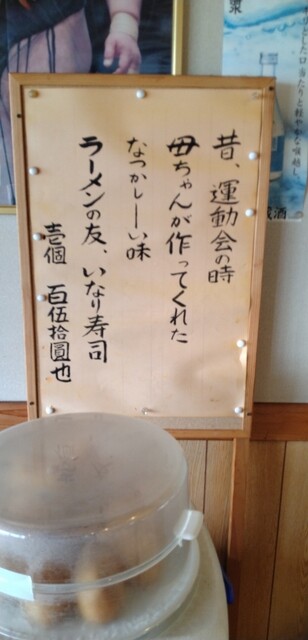 昔、運動会の時
母ちゃんが作ってくれた
なつかしーい味
ラーメンの友、いなり寿司
壱個 百伍拾圓也